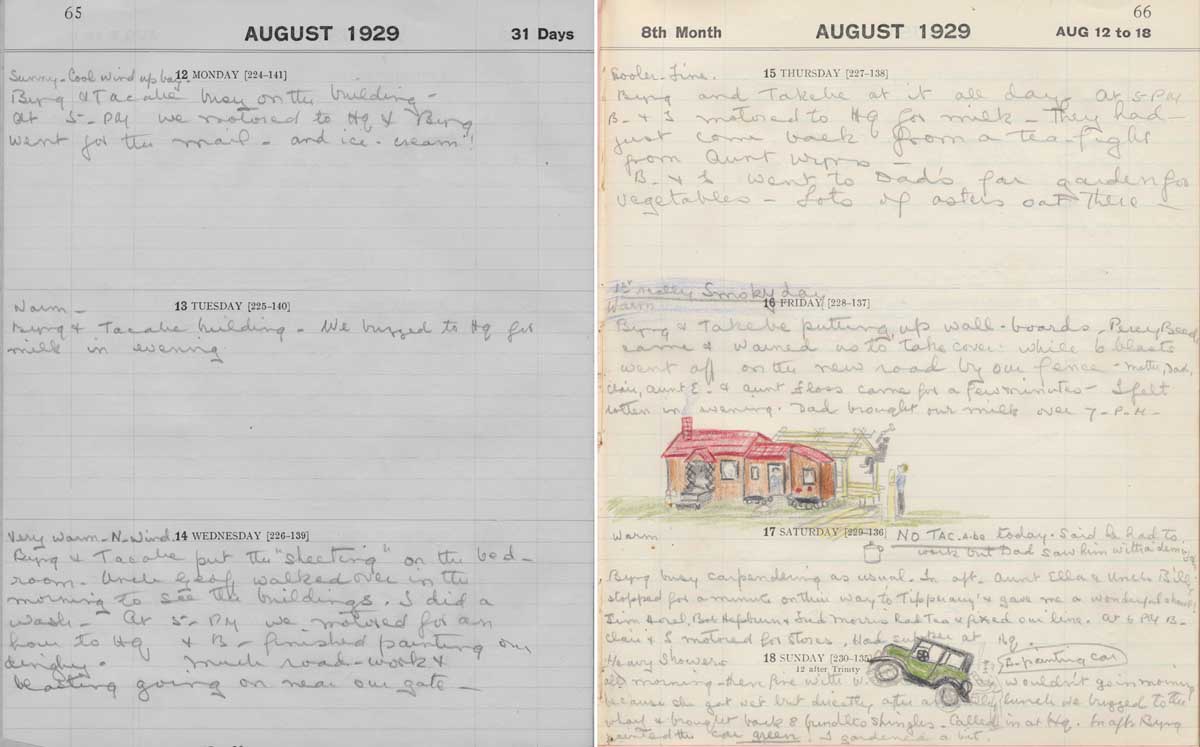 65
AUGUST 1929
31 Days
Sunny - Cool wind up bay.
12 MONDAY [224-141]
Byng & Tacabe busy on the building -
At 5 - PM we motored to Hq & Byng
went for the mail - and ice-cream!
Warm -
13 TUESDAY [225-140]
Byng & Tacabe building - We buzzed to Hq for
milk in evening
Very warm - N-Wind.
14 WEDNESDAY [226-139]
Byng & Tacabe put the "sheeting" on the bed-
room. Uncle Geof walked over in the
morning to see the buildings. I did a
wash - At 5 - PM we motored for an
hour to Hq & B - finished painting our
dinghy. Much road-work &
blasting going on near our gate -
8th Month
AUGUST 1929
66
AUG 12 to 18
Cooler - Fine.
15 THURSDAY [227-138]
Byng and Takebe at it all day. At 5 PM
B - & I motored to Hq for milk - They had -
just come back from a tea-fight
from Aunt
B - & I went to Dad's far garden for
vegetables - Lots of asters out there -
1st really Smoky day
Warm
16 FRIDAY [228-137]
Byng & Takebe putting up wall-boards. Percy
came & warned us to take cover while 6 blasts
went off on the new road by our fence - Mother, Dad,
Clair, Aunt E. & Aunt Floss came for a few minutes - I felt
rotten in evening. Dad brought our milk over 7 - P.M -
Warm
17 SATURDAY [229-136]
NO TAC.A.be today. Said he had to
work but Dad saw him with a
Byng busy carpendering as usual. In aft. Aunt Ella & Uncle Bill
stopped for a minute on their way to Tipperary & gave me a wonderful
Jim Horel, Bob Hepburn & Fred Morris had Tea & fixed our line. At 6 PM B -
Clair & I motored for stores. Had supper at Hq.
Heavy Showers
18 SUNDAY [230-135]
12 after Trinity
B-painting car
all morning - then fine with wouldn't go in morning
because she got wet but directly after lunch we buzzed to the
wharf & brought back 8 bundles shingles - Called in at Hq. In aft. Byng
painted the car green. I gardened a bit.